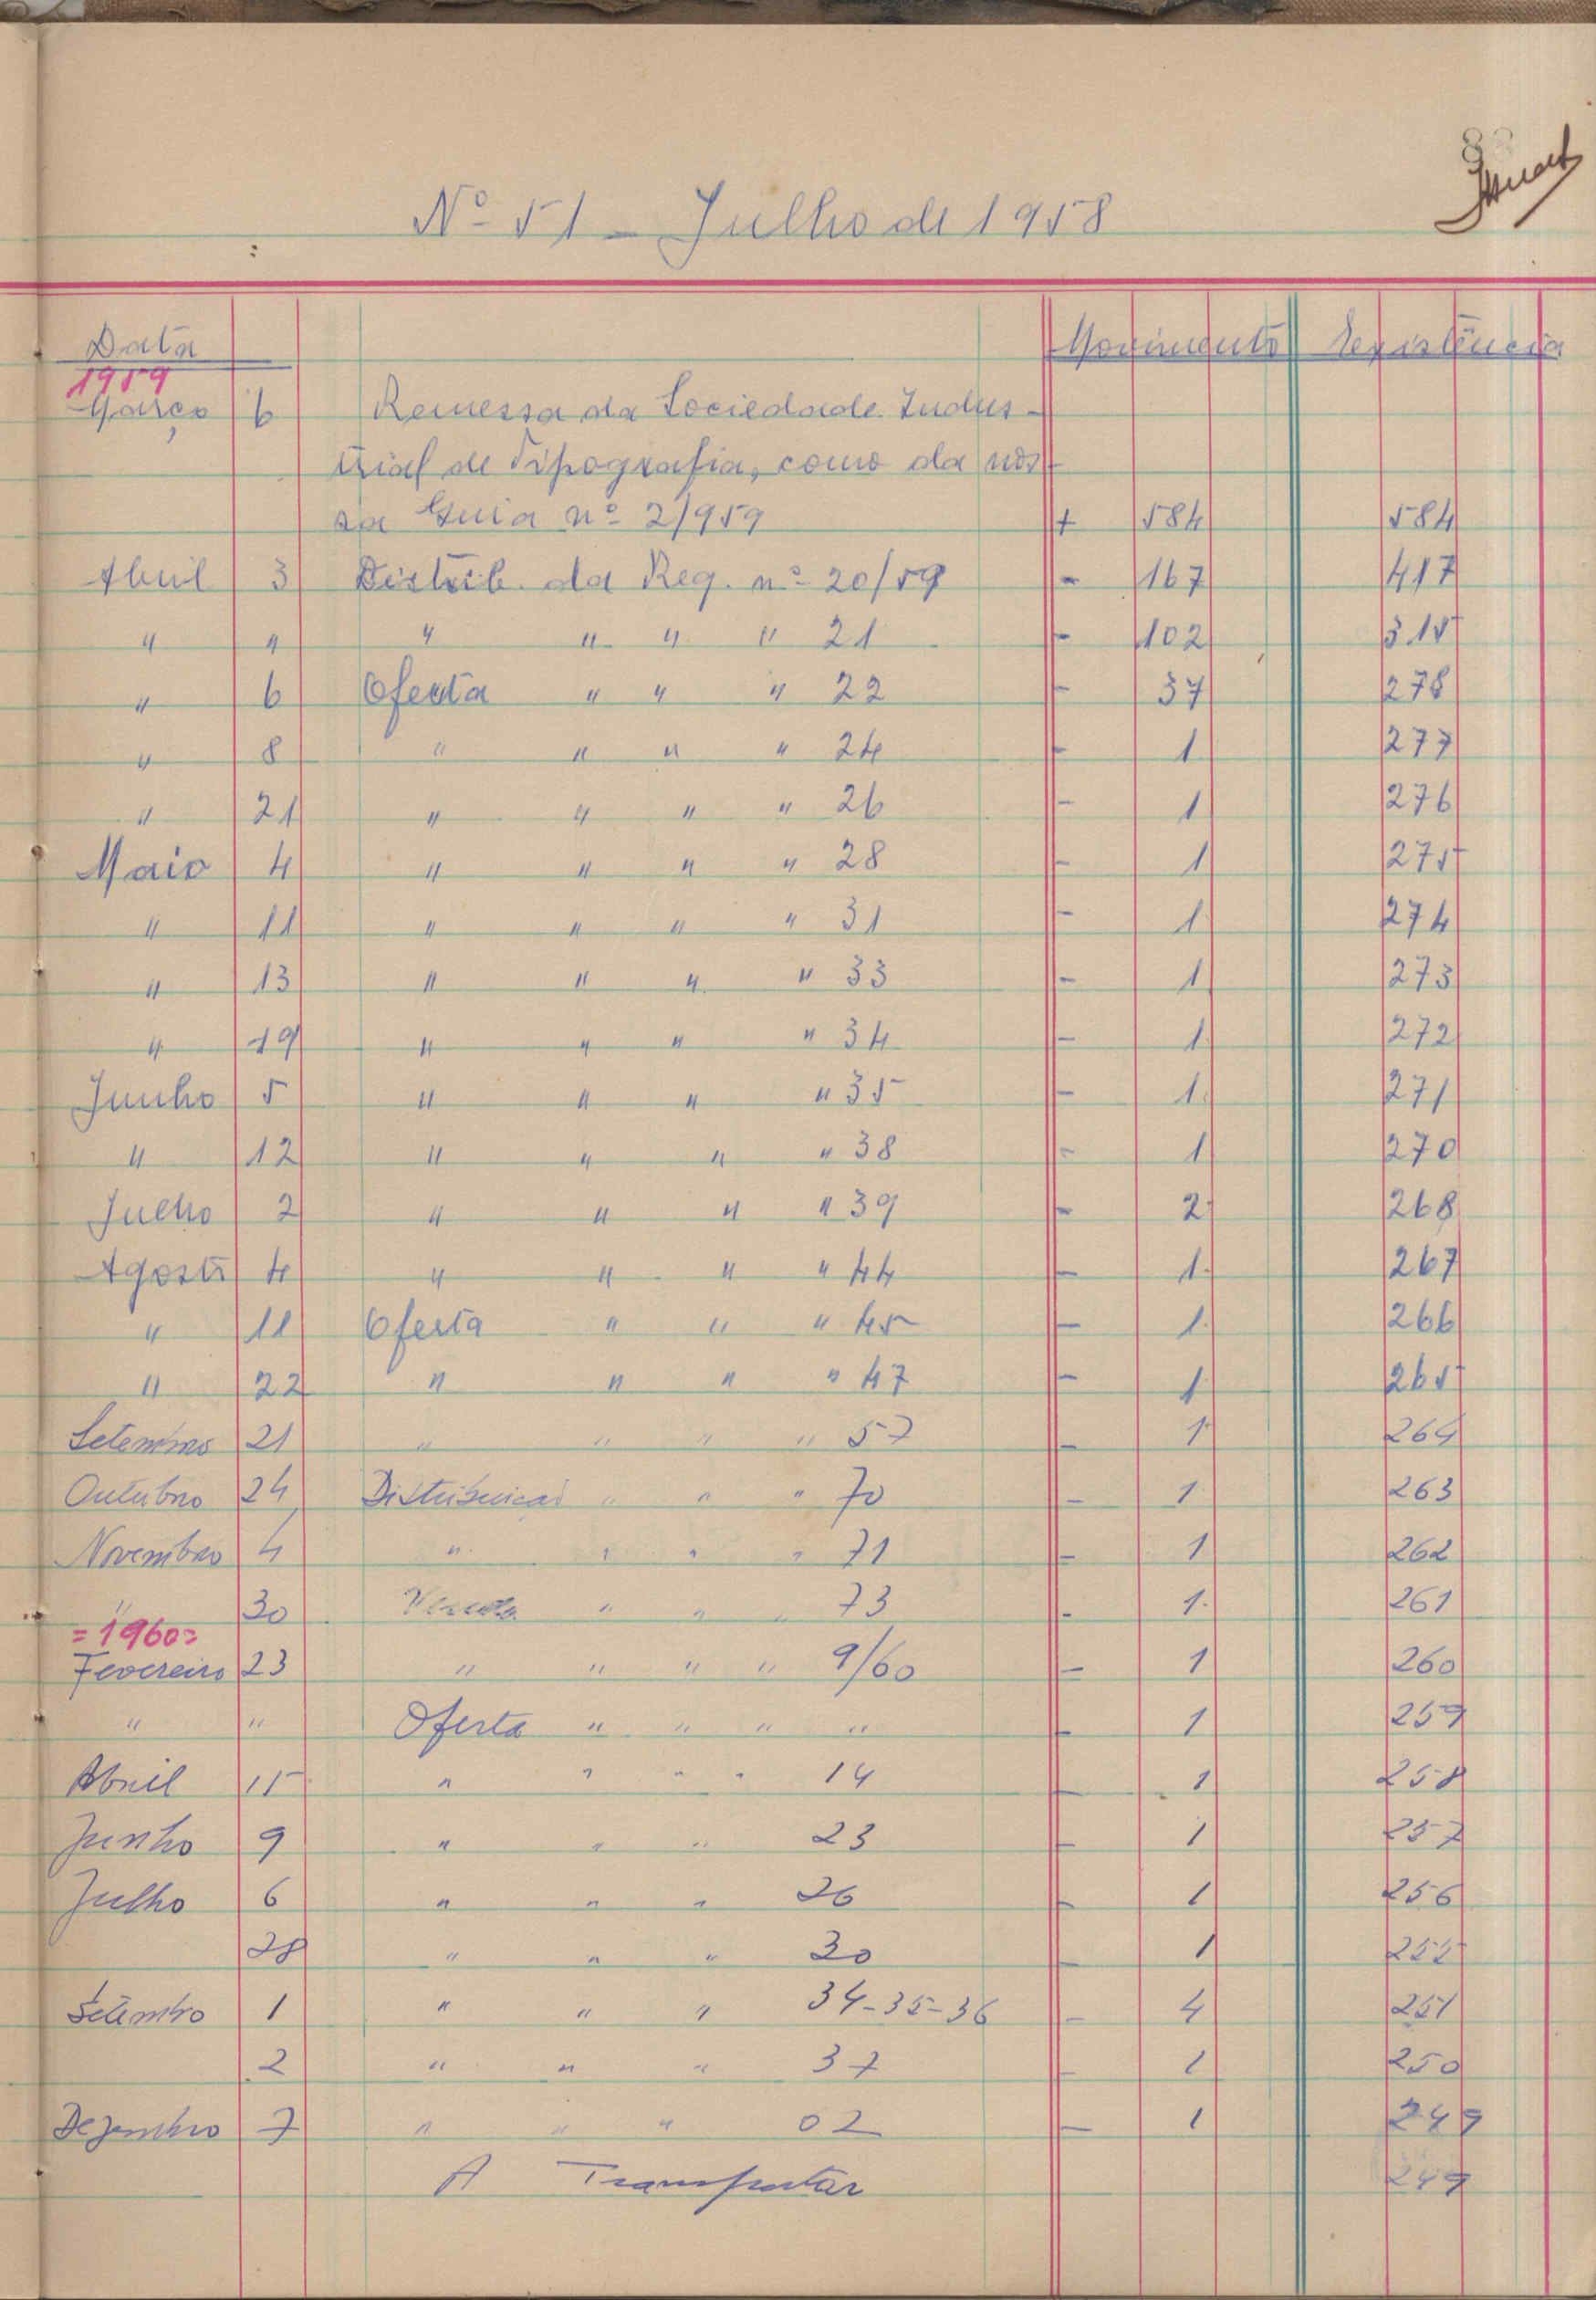 88
Nº 51 - Julho de 1958
Data Movimento Existência
1959
Março 6 Remessa da Sociedade Indus-
trial de Tipografia, como da nos-
sa Guia nº 2/959 + 584 584
Abril 3 Distrib. da Req. nº 20/59 - 167 417
" " " " " " 21 - 102 315
" 6 Oferta " " " 22 - 37 278
" 8 " " " " 24 - 1 277
" 21 " " " " 26 - 1 276
Maio 4 " " " " 28 - 1 275
" 11 " " " " 31 - 1 274
" 13 " " " " 33 - 1 273
" 19 " " " " 34 - 1 272
Junho 5 " " " " 35 - 1 271
" 12 " " " " 38 - 1 270
Julho 2 " " " " 39 - 2 268
Agosto 4 " " " " 44 - 1 267
" 11 Oferta " " " 45 - 1 266
" 22 " " " " 47 - 1 265
Setembro 21 " " " " 57 - 1 264
Outubro 24 Distribuição " " " 70 - 1 263
Novembro 4 " " " " 71 - 1 262
" 30 Venda " " " 73 - 1 261
=1960=
Fevereiro 23 " " " " 9/60 - 1 260
" " Oferta " " " " - 1 259
Abril 15 " " " " 14 - 1 258
Junho 9 " " " 23 - 1 257
Julho 6 " " " 26 - 1 256
28 " " " 30 - 1 255
Setembro 1 " " " 34-35-36 - 4 251
2 " " " 37 - 1 250
Dezembro 7 " " " 02 - 1 249
A Transportar 249